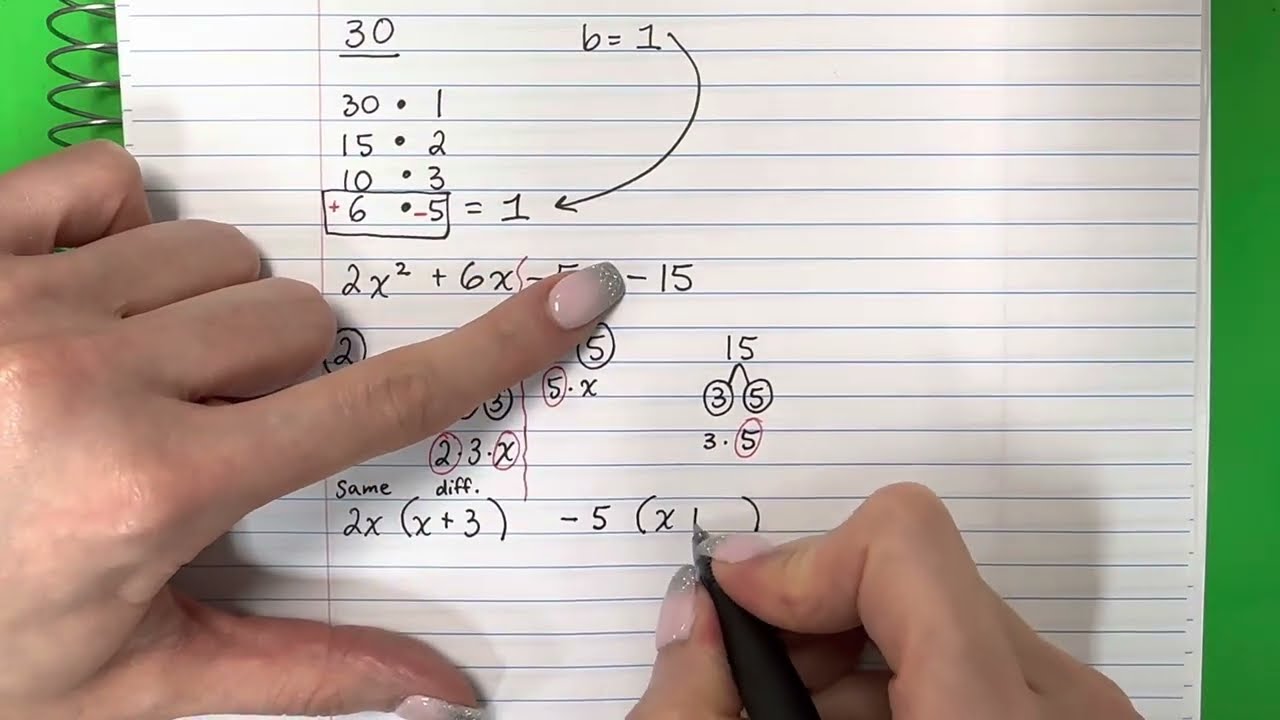 30 b = 1
30 • 1
15 • 2
10 • 3
+6 • -5 = 1
2x² + 6x - 5 - 15
2 5 15
3 5 • x 3 5
2 • 3 • x 3 • 5
Same diff.
2x (x + 3) - 5 (x )